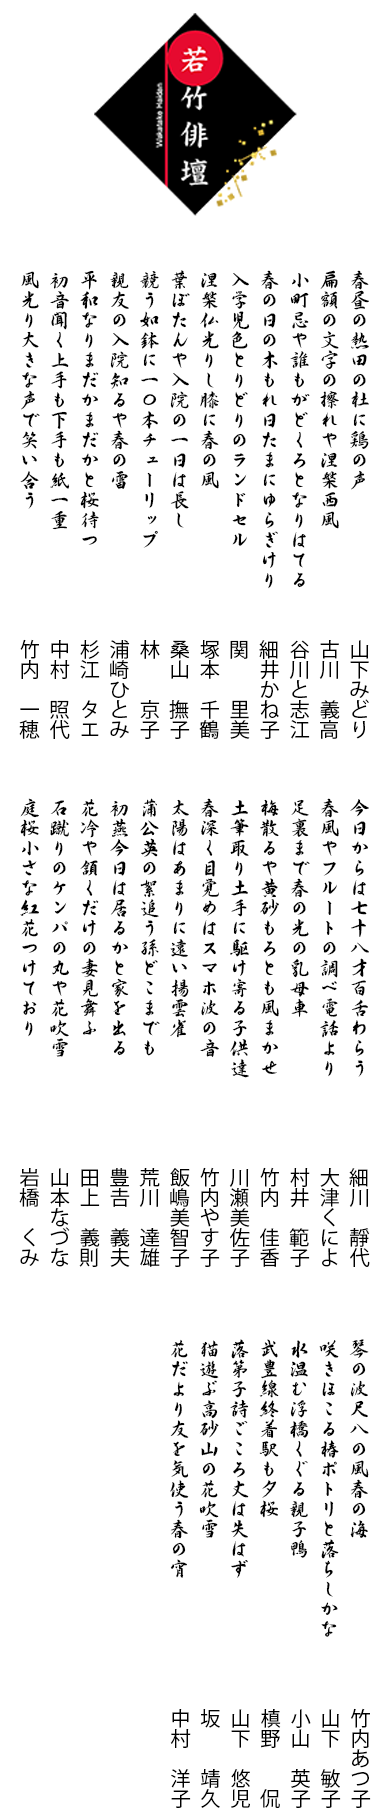 若竹俳壇
Wakatake Haidan
春昼の熱田の杜に鶏の声
扁額の文字の擦れや涅槃西風
小町忌や誰もがどくろとなりはてる
春の日の木もれ日たまにゆらぎけり
入学児色とりどりのランドセル
涅槃仏光りし膝に春の風
葉ぼたんや入院の一日は長し
競う如鉢に一〇本チューリップ
親友の入院知るや春の雷
平和なりまだかまだかと桜待つ
初音聞く上手も下手も紙一重
風光り大きな声で笑い合う
山下みどり
古川 義高
谷川と志江
細井かね子
関 里美
塚本 千鶴
桑山 撫子
林 京子
浦崎ひとみ
杉江 タエ
中村 照代
竹内 一穂
今日からは七十八才百舌わらう
春風やフルートの調べ電話より
足裏まで春の光の乳母車
梅散るや黄砂もろとも風まかせ
土筆取り土手に駆け寄る子供達
春深く目覚めはスマホ波の音
太陽はあまりに遠い揚雲雀
蒲公英の絮追う孫どこまでも
初燕今日は居るかと家を出る
花冷や頷くだけの妻見舞ふ
石蹴りのケンパの丸や花吹雪
庭桜小さな紅花つけており
細川 靜代
大津くによ
村井 範子
竹内 佳香
川瀬美佐子
竹内やす子
飯嶋美智子
荒川 達雄
豊𠮷 義夫
田上 義則
山本なづな
岩橋 くみ
琴の波尺八の風春の海
咲きほこる椿ポトリと落ちしかな
水温む浮橋くぐる親子鴨
武豊線終着駅も夕桜
落第子詩ごころ丈は失はず
猫遊ぶ高砂山の花吹雪
花だより友を気使う春の宵
竹内あつ子
山下 敏子
小山 英子
槙野 侃
山下 悠児
坂 靖久
中村 洋子